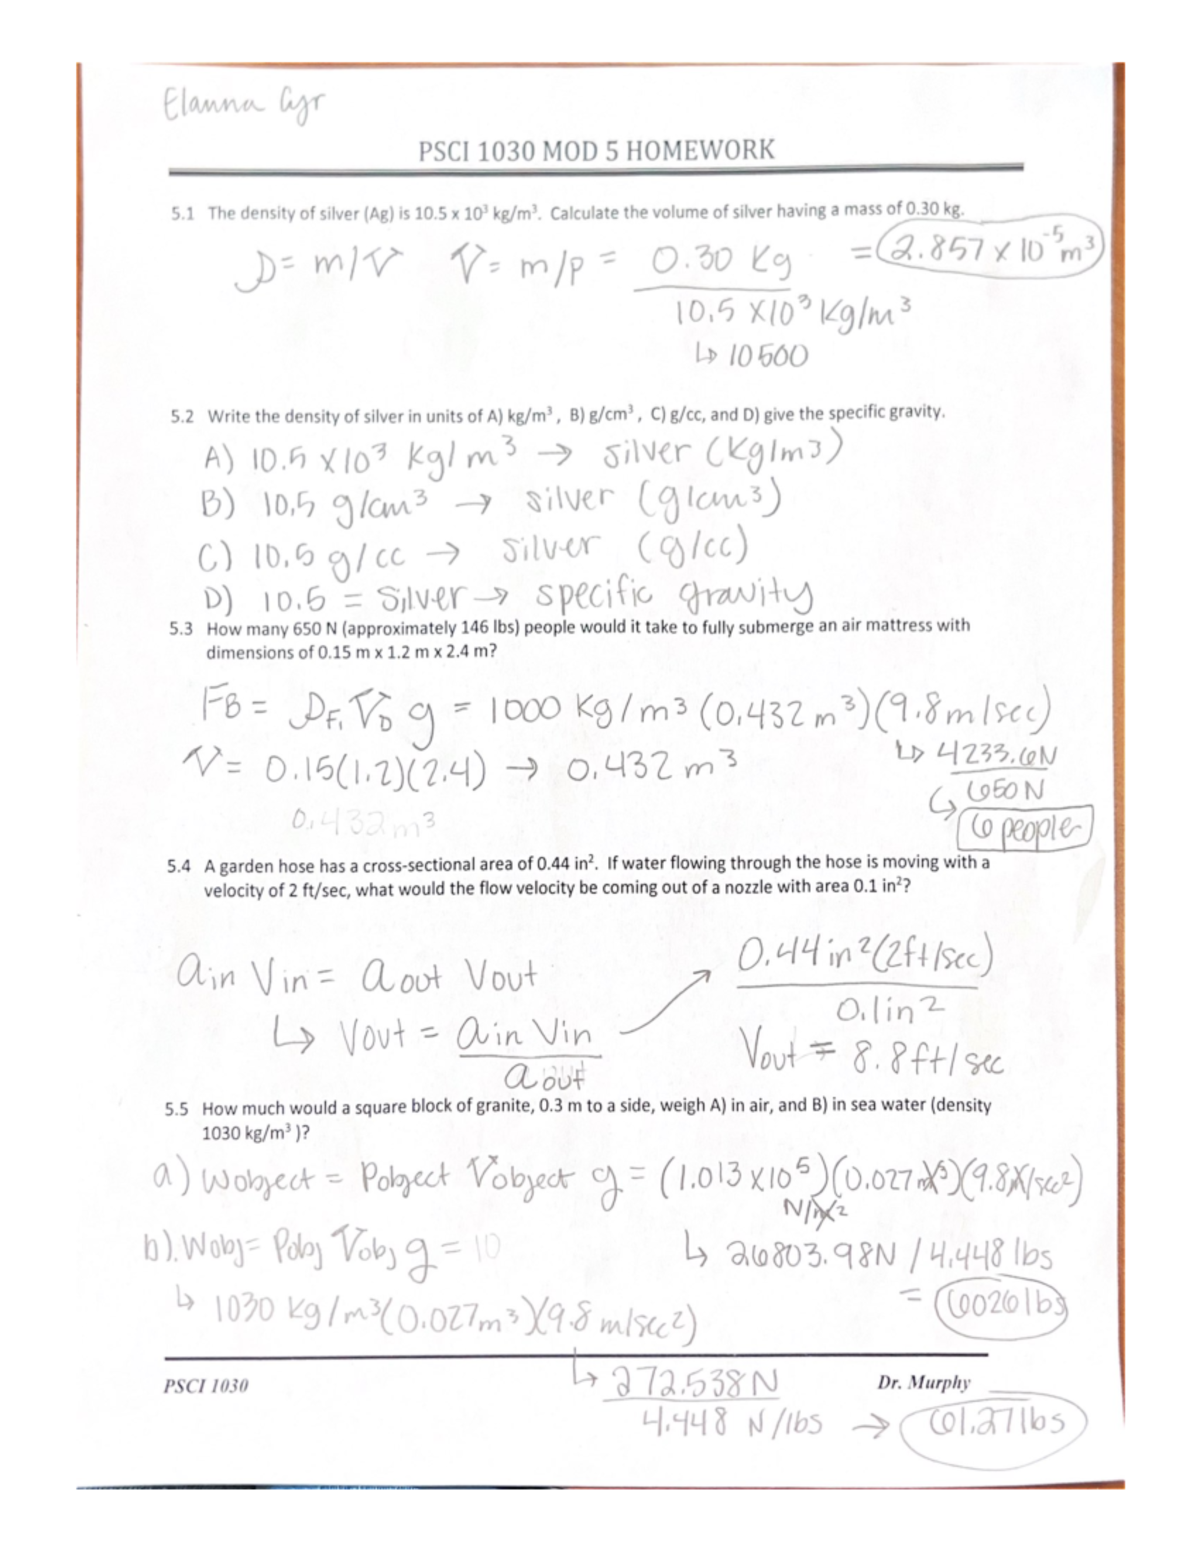 Elanna Cyr
PSCI 1030 MOD 5 HOMEWORK
5.1 The density of silver (Ag) is 10.5 x 10³ kg/m³. Calculate the volume of silver having a mass of 0.30 kg.
D = m/V V = m/p = 0.30 kg = 2.857 x 10⁻⁵ m³
10.5 x10³ kg/m³
↳ 10500
5.2 Write the density of silver in units of A) kg/m³, B) g/cm³, C) g/cc, and D) give the specific gravity.
A) 10.5 x10³ kg/m³ → silver (kg/m3)
B) 10.5 g/cm³ → silver (g/cm3)
C) 10.5 g/cc → silver (g/cc)
D) 10.5 = Silver → specific gravity
5.3 How many 650 N (approximately 146 lbs) people would it take to fully submerge an air mattress with
dimensions of 0.15 m x 1.2 m x 2.4 m?
FB = DF, VD g = 1000 kg/m3 (0.432 m³)(9.8m/sec)
V = 0.15(1.2)(2.4) → 0.432 m³ ↳ 4233.6N
650N
0.432m³ ↳ 6 people
5.4 A garden hose has a cross-sectional area of 0.44 in². If water flowing through the hose is moving with a
velocity of 2 ft/sec, what would the flow velocity be coming out of a nozzle with area 0.1 in²?
ain Vin = aout Vout 0.44in²(2ft/sec)
0.1in²
↳ Vout = ain Vin Vout = 8.8ft/sec
aout
5.5 How much would a square block of granite, 0.3 m to a side, weigh A) in air, and B) in sea water (density
1030 kg/m³ )?
a) Wobject = Pobject Vobject g = (1.013 x10⁵)(0.027m³)(9.8m/sec²)
N/m²
b). Wobj= Pobj Vobj g = 10 ↳ 26803.98N / 4.448 lbs
↳ 1030 kg/m³(0.027m³)(9.8 m/sec²) = 6026lbs
PSCI 1030 ↳ 272.538N Dr. Murphy
4.448 N/lbs → 61.27lbs